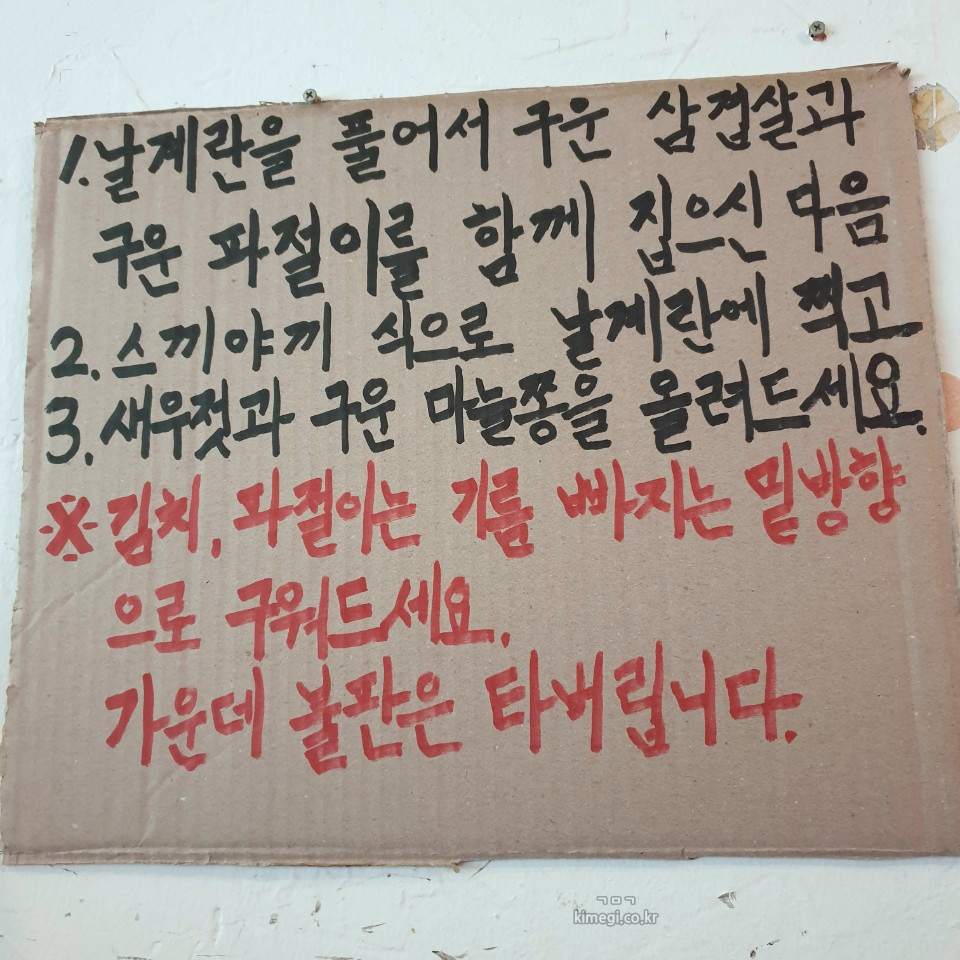 1. 날계란을 풀어서 구운 삼겹살과
구운 파절이를 함께 집으신 다음
2. 스끼야끼 식으로 날계란에 찍고
3. 새우젓과 구운 마늘쫑을 올려드세요.
※김치, 파절이는 기름 빠지는 밑방향
으로 구워드세요.
가운데 불판은 타버립니다.
ㄱㅁㄱ
kimegi.co.kr